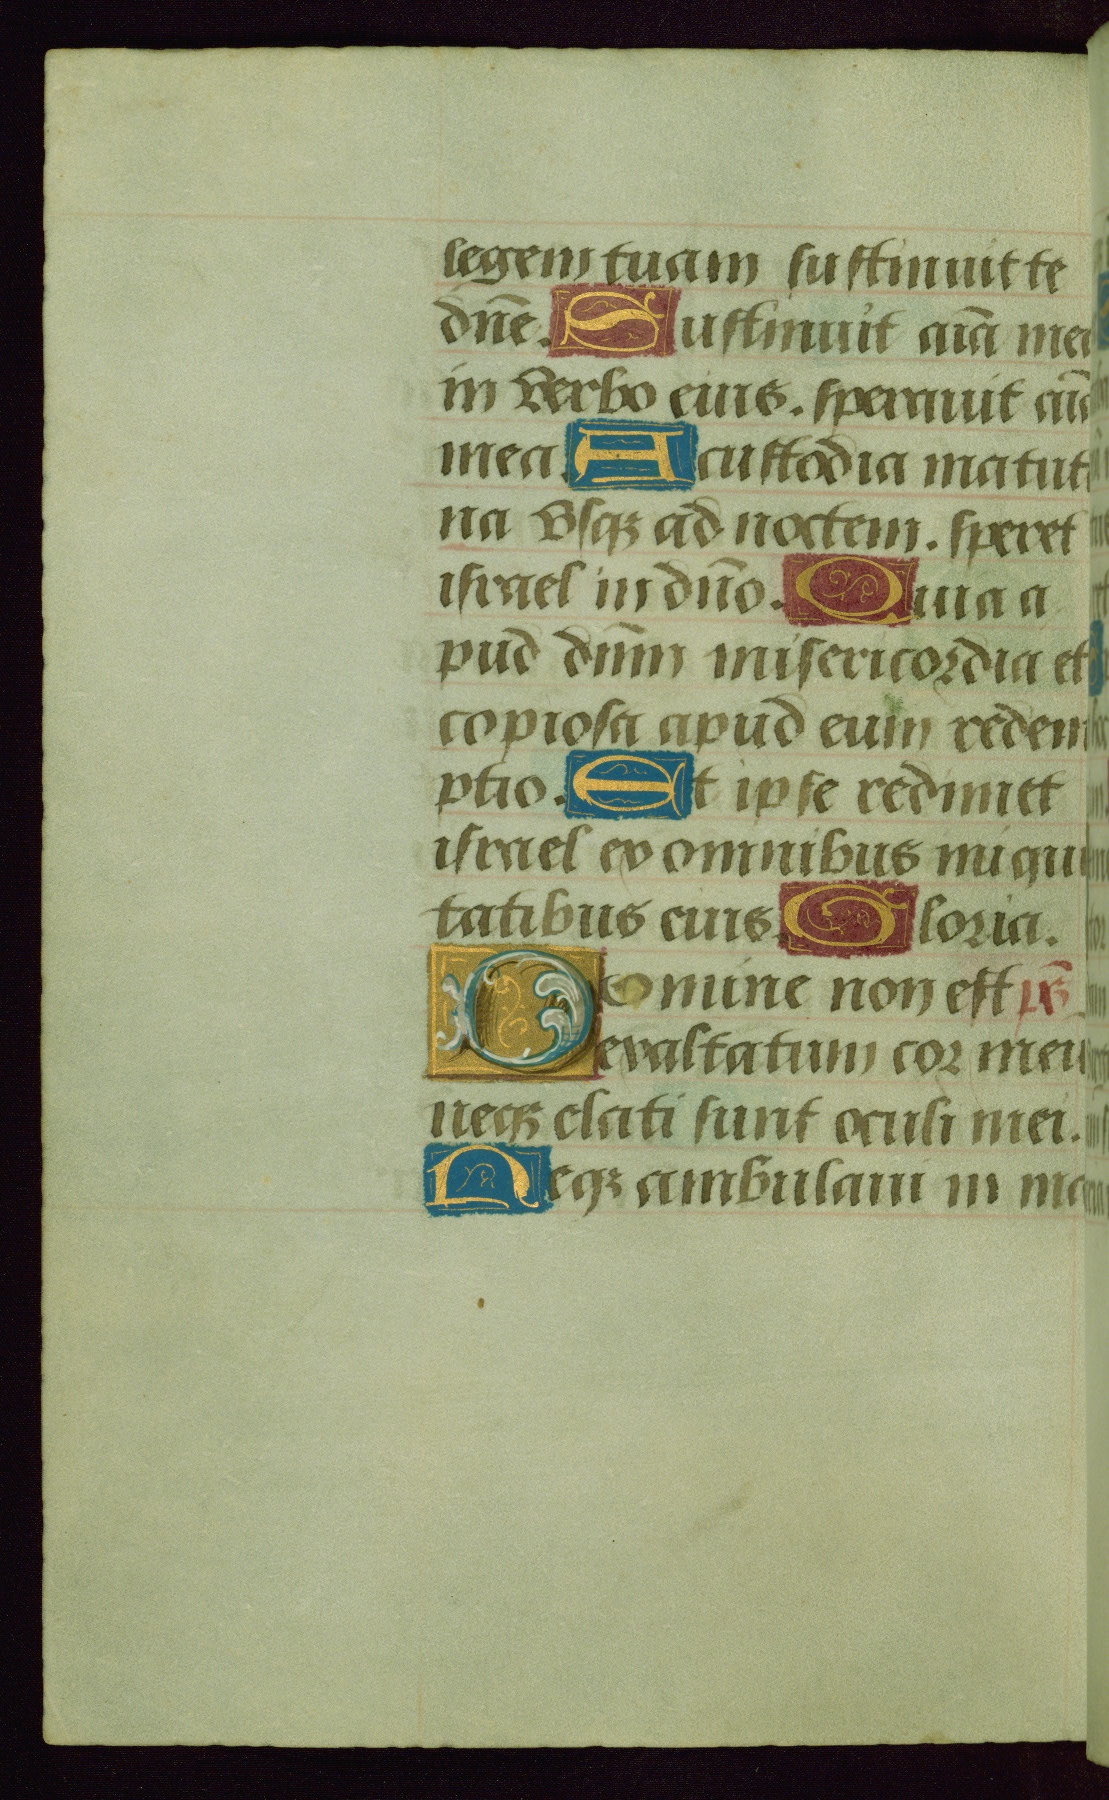 legem tuam sustinuit te
dn̄e. Sustinuit aīa mea
in verbo eius. speravit aīa
mea. A custodia matuti
na vsqꝫ ad noctem. speret
israel in dn̄o. Quia a
pud dn̄m misericordia et
copiosa apud eum redem
ptio. Et ipse redimet
israel ex omnibus iniqui
tatibus eius. Gloria.
Domine non est ps̄
exaltatum cor meū
neqꝫ elati sunt oculi mei.
Neqꝫ ambulavi in ma